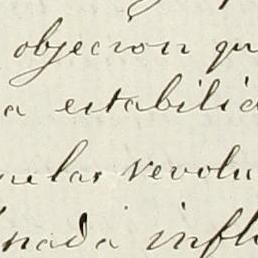 objecion qu
a estabilid
ular revolu
nada influ